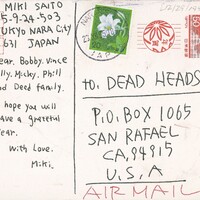 MIKI SAITO
5-9-24-503
UKYO NARA CITY
631 JAPAN
ear. Bobby. Vince
lly. Micky. Phill
nd Deed family.
hope you will
ave a grateful
ear.
With Love.
Miki.
to: DEAD HEADS
P.O. BOX 1065
SAN RAFAEL
CA, 94915
U.S.A
AIR MAIL